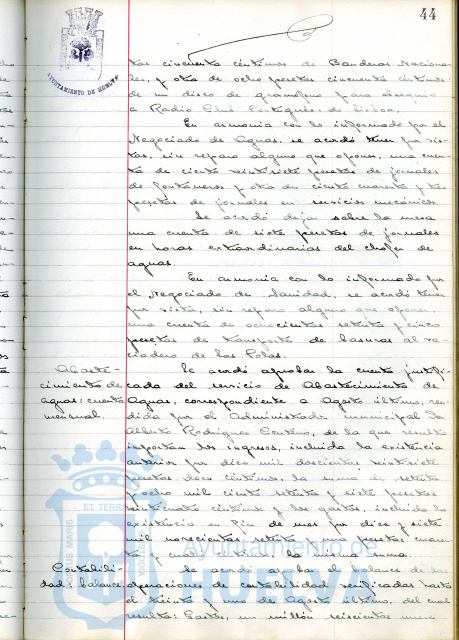 44
AYUNTAMIENTO DE HUELVA
tas cincuenta céntimos de Banderas Naciona-
les, y otra de ocho pesetas cincuenta céntimos
de un disco de gramofono para obsequio
a Radio Club Portugués, de Lisboa.
En armonía con lo informado por el
Negociado de Aguas, se acordó tener por vis-
tas, sin reparo alguno que oponer, una cuen-
ta de ciento veintisiete pesetas de jornales
de fontaneros y otra de ciento cuarenta y tres
pesetas de jornales en servicios mecánicos.
Se acordó dejar sobre la mesa
una cuenta de siete pesetas de jornales
en horas extraordinarias del chofer de
aguas.
En armonía con lo informado por
el Negociado de Sanidad, se acordó tener
por vista, sin reparo alguno que oponer,
una cuenta de ochocientas setenta y cinco
pesetas de transporte de basuras al va-
ciadero de las Polas.
Abaste-
cimiento de
aguas: cuenta
mensual.
Se acordó aprobar la cuenta justifi-
cada del servicio de Abastecimiento de
Aguas, correspondiente a Agosto último, ren-
dida por el Administrador municipal Dn
Alberto Rodriguez Centeno, de la que resulta
importan los ingresos, incluida la existencia
anterior por diez mil doscientas veintisiete
pesetas doce céntimos, la suma de setenta
y ocho mil ciento setenta y siete pesetas
céntimos y los gastos, incluida la
existencia en fin de mes por diez y siete
mil novecientas setenta y una pesetas
y la misma suma.
Contabili-
dad: balance
Se acordó aprobar el balance de las
operaciones de contabilidad verificadas hasta
el treinta y uno de Agosto último, del cual
resulta: Gastos, un millón seiscientas nueve
Ayuntamiento de
HUELVA